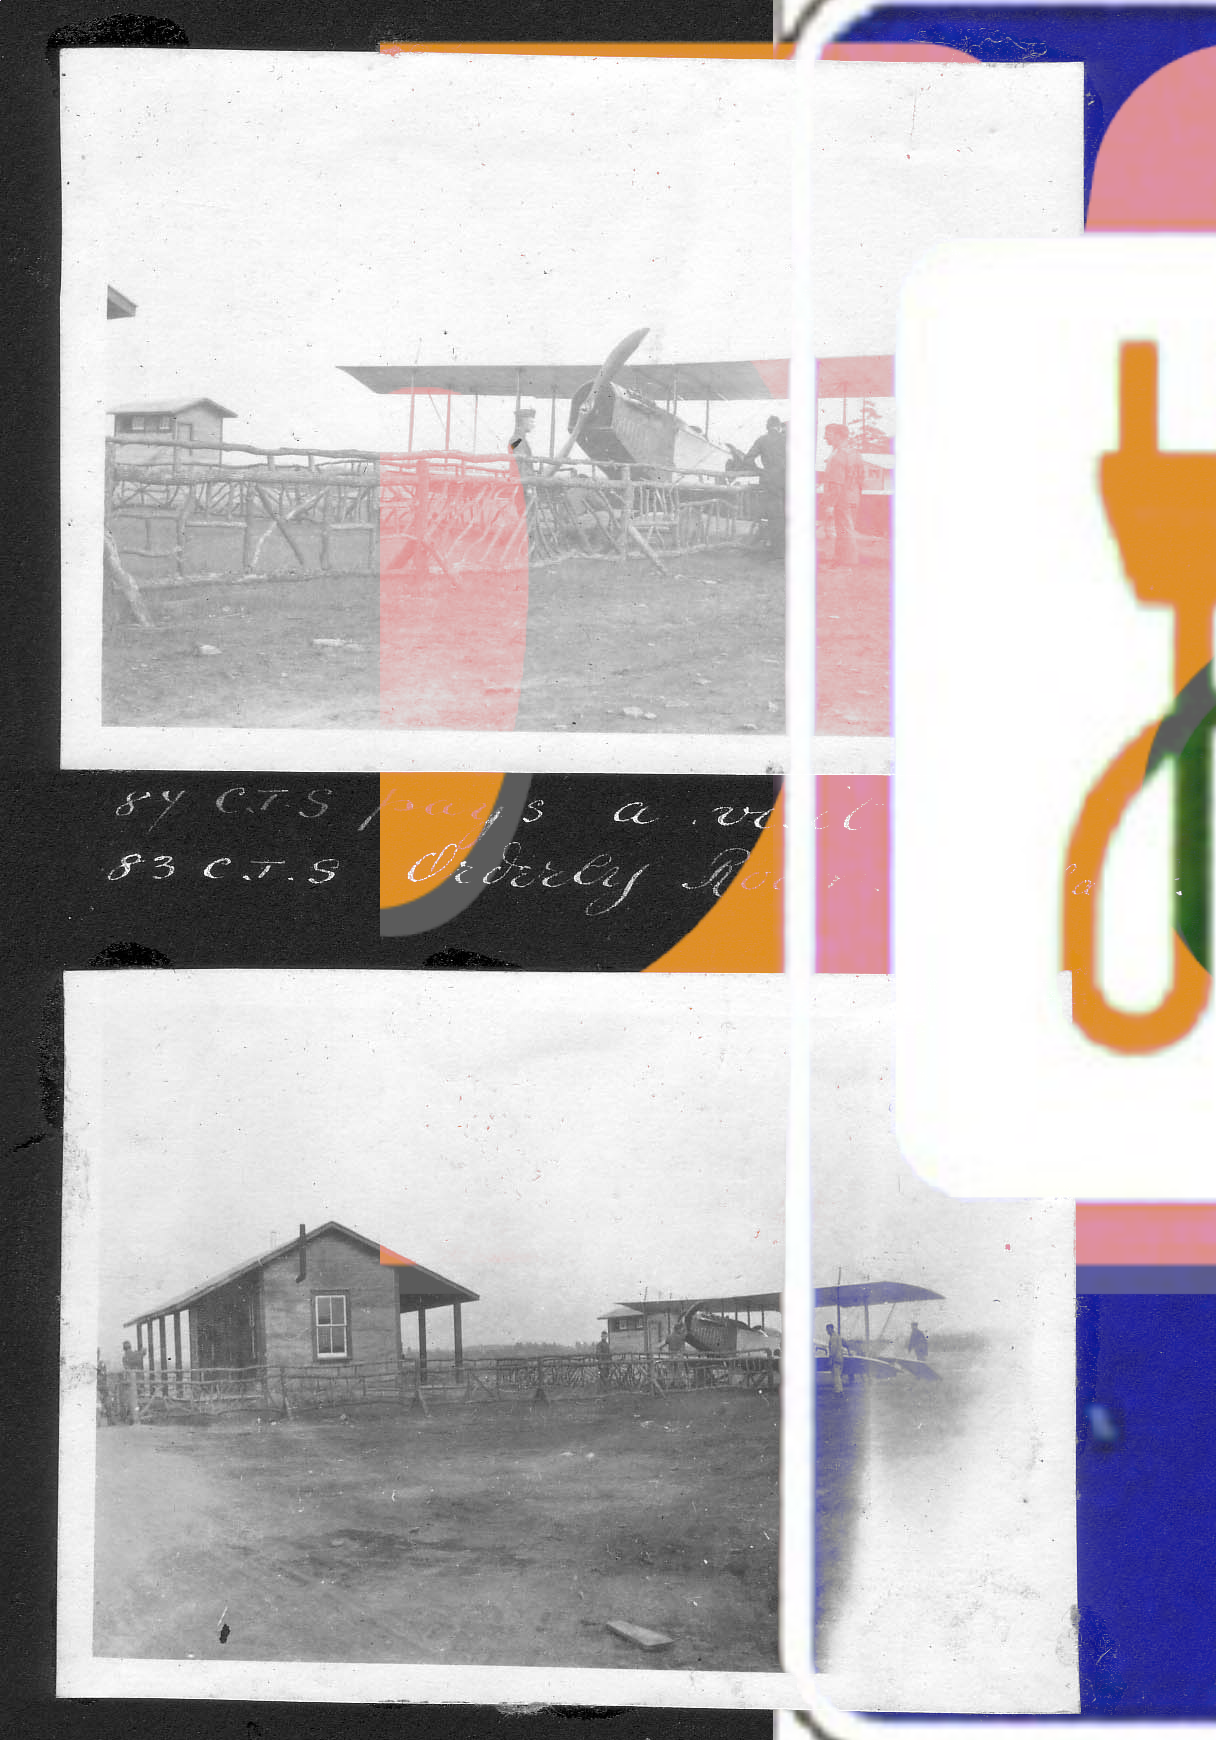 84 C.T.S pays a visit
83 C.T.S Orderly